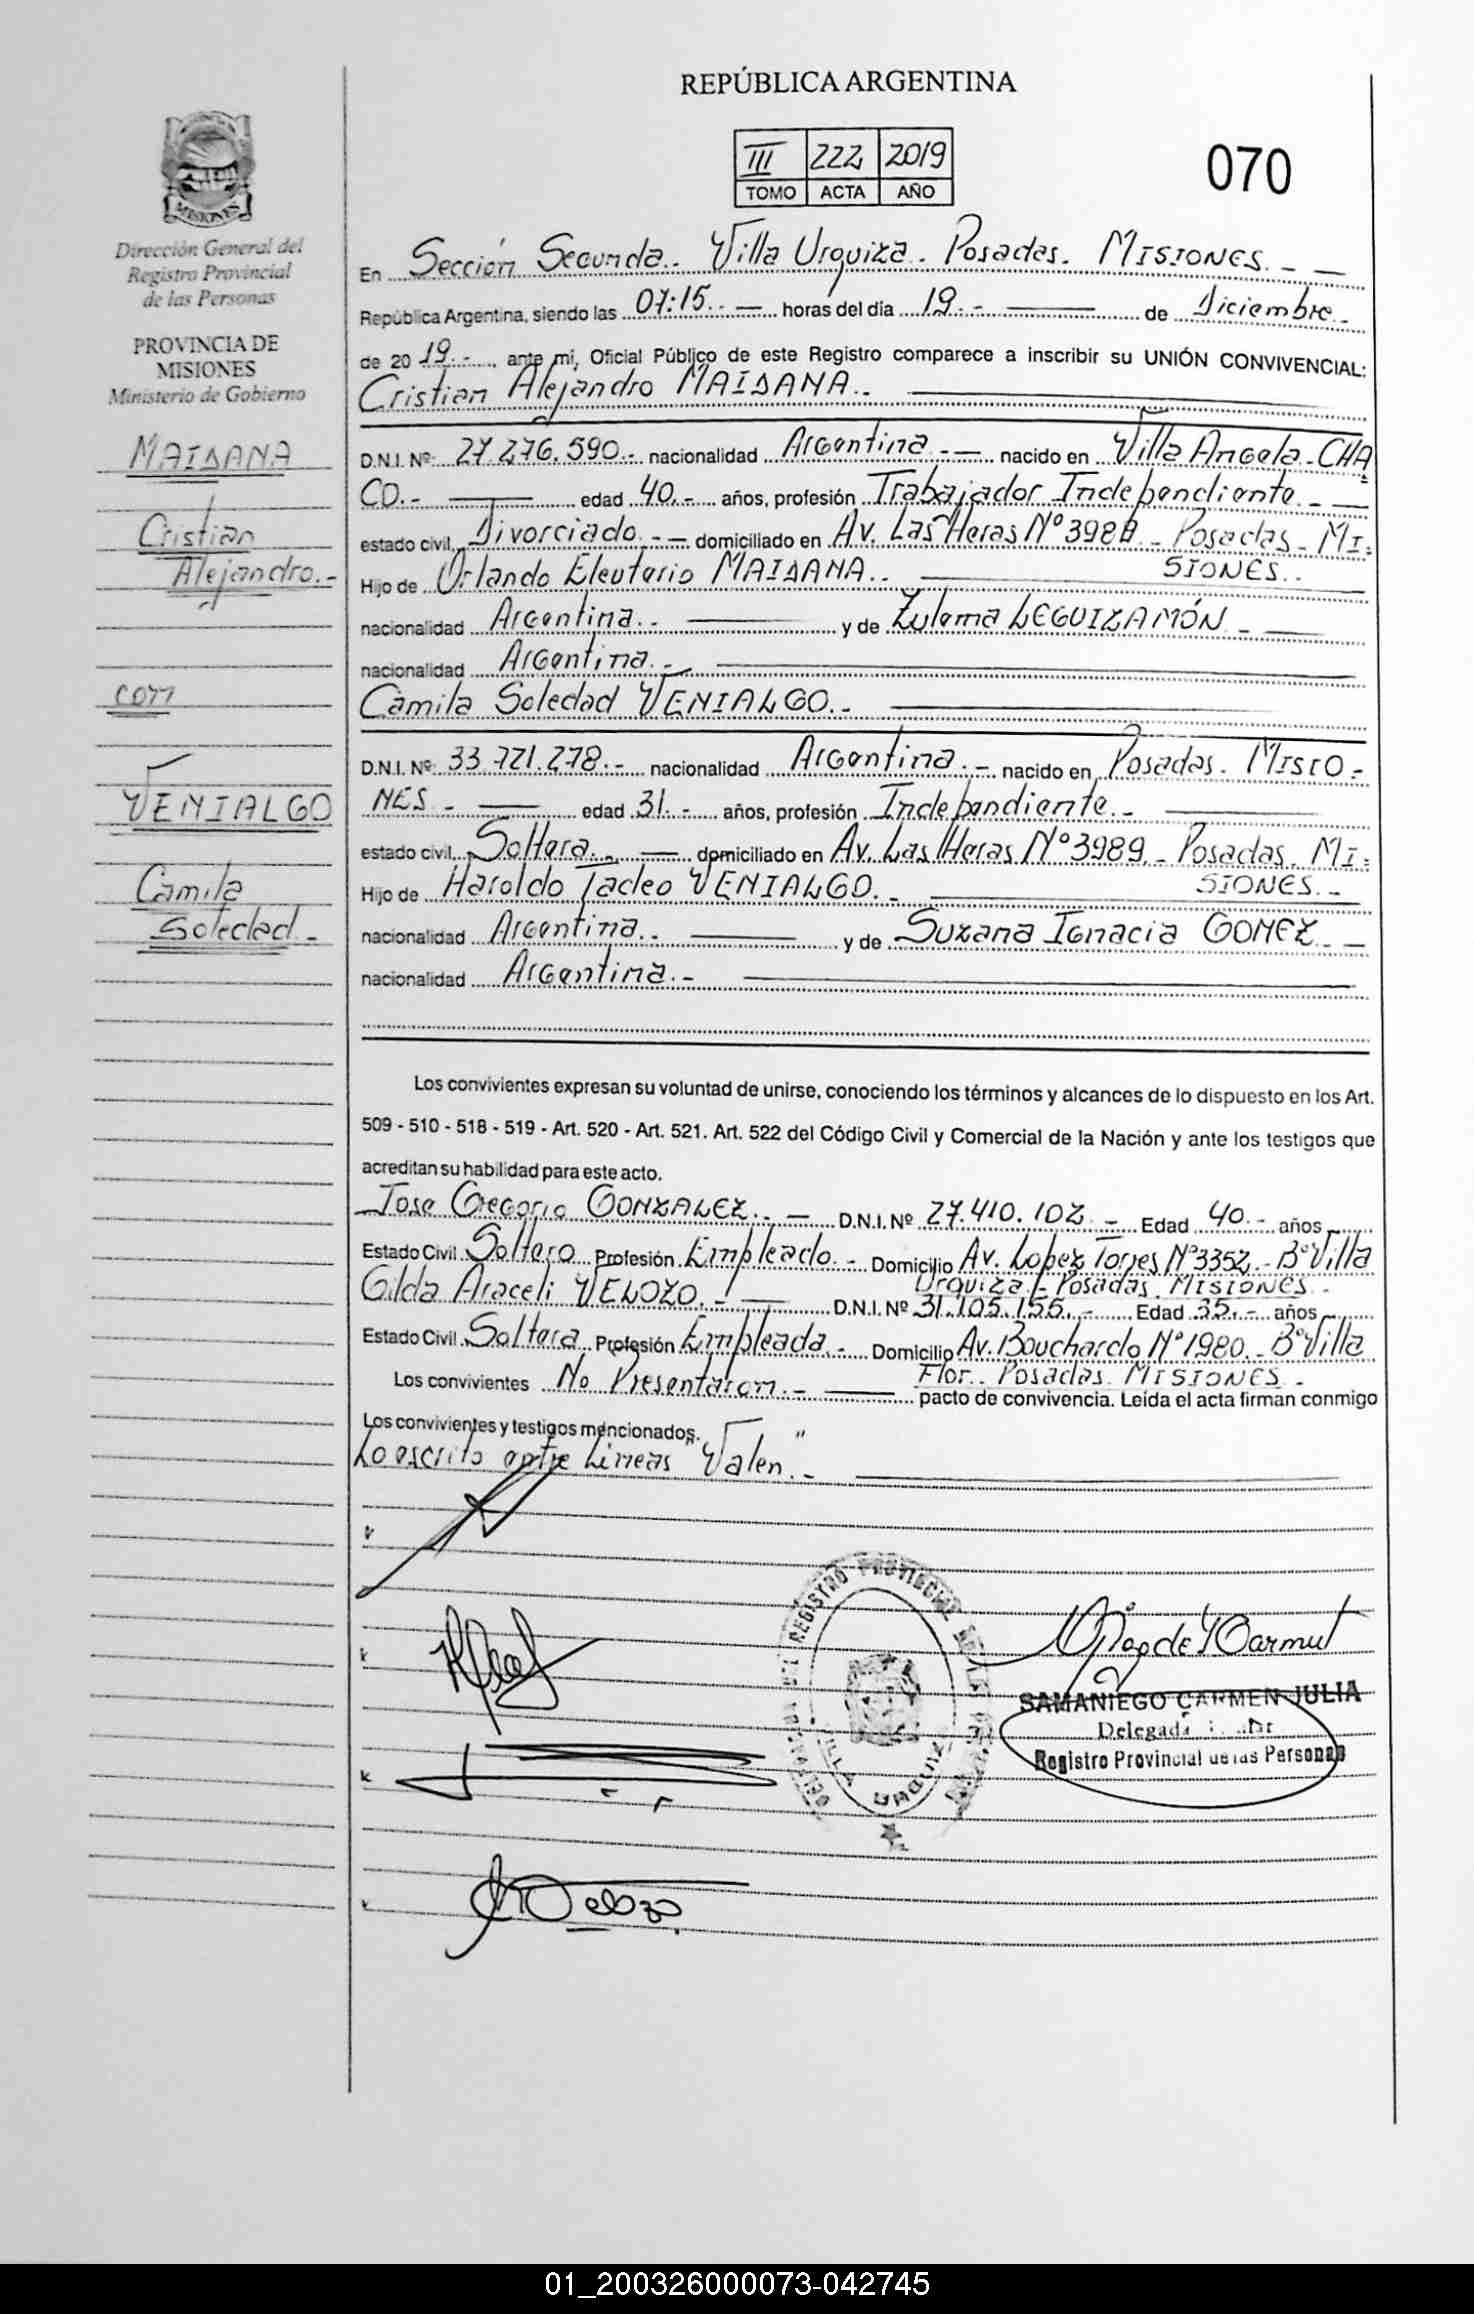 REPÚBLICA ARGENTINA
III 222 2019
TOMO ACTA AÑO
070
MISIONES
Dirección General del
Registro Provincial
de las Personas
PROVINCIA DE
MISIONES
Ministerio de Gobierno
MAIDANA
Cristian
Alejandro.-
con
VENIALGO
Camila
Soledad.-
En Sección Segunda.. Villa Urquiza. Posadas. MISIONES.- -
República Argentina, siendo las 07:15.- horas del día 19.- de Diciembre.-
de 20 19.-, ante mi, Oficial Público de este Registro comparece a inscribir su UNIÓN CONVIVENCIAL:
Cristian Alejandro MAIDANA..
D.N.I. Nº 27.276.590.- nacionalidad Argentina.- nacido en Villa Angela-CHA
CO.- edad 40.- años, profesión Trabajador Independiente.-
estado civil Divorciado.- domiciliado en Av. Las Heras Nº 3989.- Posadas- MI-
Hijo de Orlando Eleuterio MAIDANA.. SIONES..
nacionalidad Argentina.. y de Zulema LEGUIZAMÓN.-
nacionalidad Argentina.-
Camila Soledad VENIALGO.-
D.N.I. Nº 33.721.278.- nacionalidad Argentina.- nacido en Posadas. MISIO-
NES.- edad 31.- años, profesión Independiente.-
estado civil Soltera.. domiciliado en Av. Las Heras Nº 3989.- Posadas. MI-
Hijo de Haroldo Tadeo VENIALGO.- SIONES.-
nacionalidad Argentina.. y de Suzana Ignacia GOMEZ.-
nacionalidad Argentina.-
Los convivientes expresan su voluntad de unirse, conociendo los términos y alcances de lo dispuesto en los Art.
509 - 510 - 518 - 519 - Art. 520 - Art. 521. Art. 522 del Código Civil y Comercial de la Nación y ante los testigos que
acreditan su habilidad para este acto.
Jose Gregorio GONZALEZ.. D.N.I. Nº 27.410.102.- Edad 40.- años
Estado Civil Soltero Profesión Empleado.- Domicilio Av. Lopez Torres Nº 3352.- Bº Villa
Urquiza.- Posadas. MISIONES.-
Gilda Araceli VELOZO.- D.N.I. Nº 31.105.155.- Edad 35.- años
Estado Civil Soltera Profesión Empleada.- Domicilio Av. Bouchardo Nº 1980.- Bº Villa
Flor.. Posadas. MISIONES.-
Los convivientes No Presentaron.- pacto de convivencia. Leída el acta firman conmigo
Los convivientes y testigos mencionados.
Lo escrito entre Lineas "Valen".-
REGISTRO PROVINCIAL DE LAS
VILLA URQUIZA
SAMANIEGO CARMEN JULIA
Delegada
Registro Provincial de las Personas
Velozo.
01_200326000073-042745